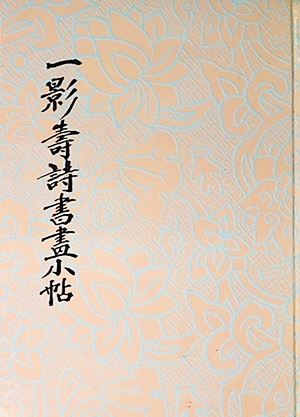 一影壽詩書畫小帖